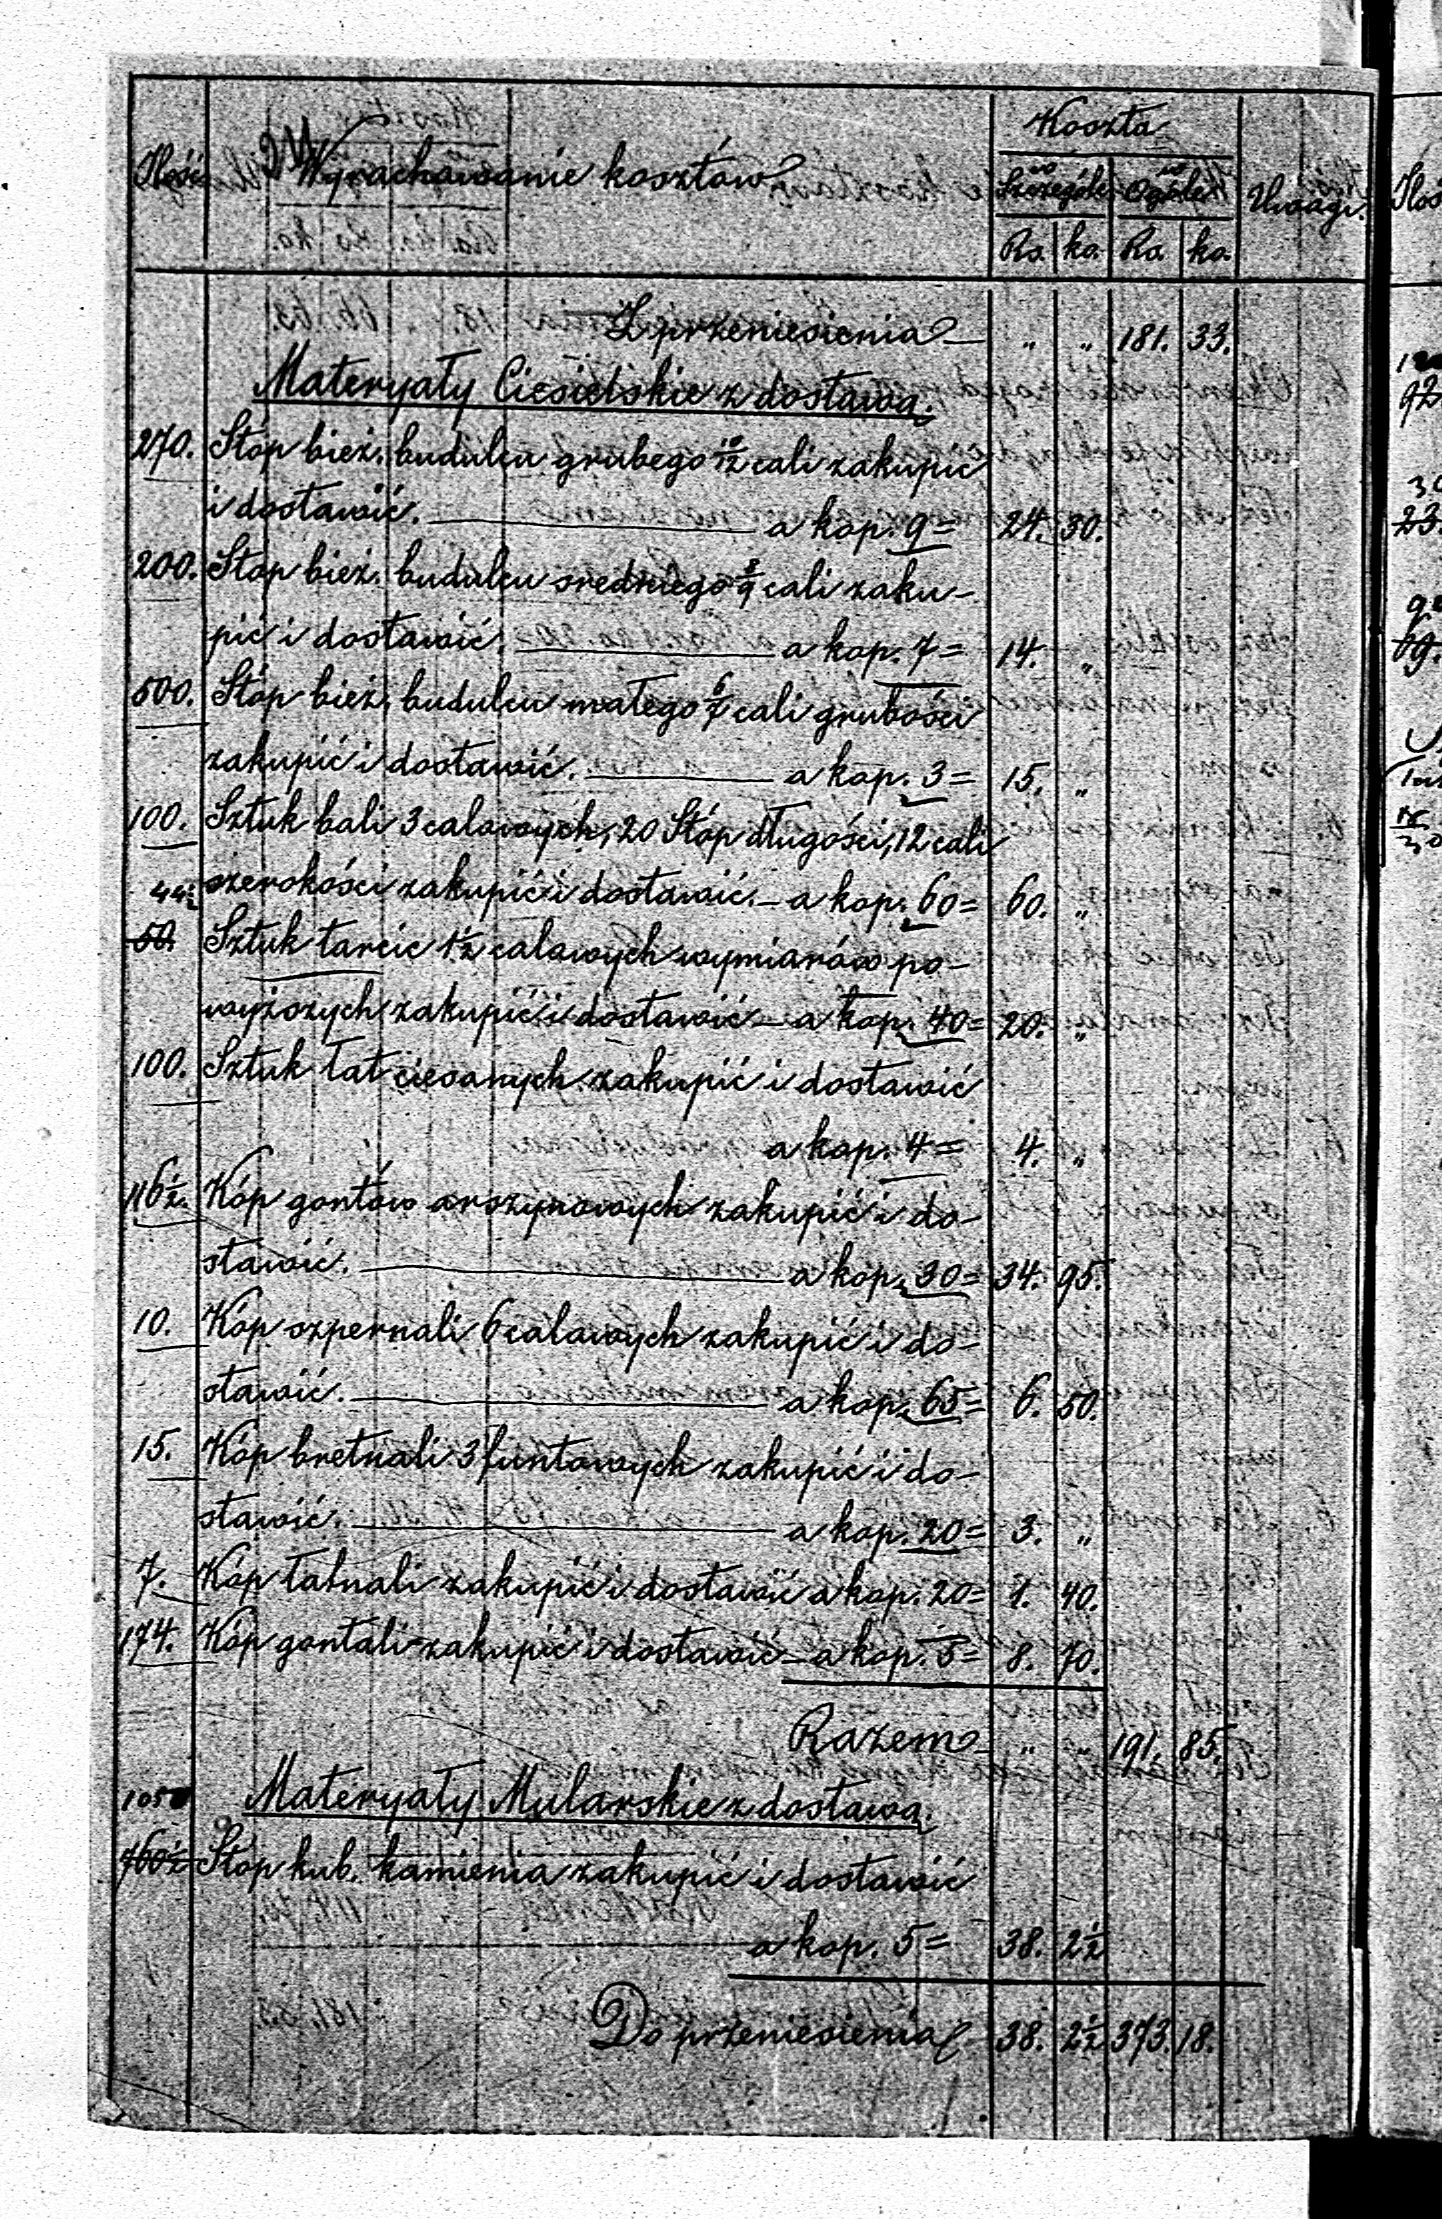 Koszta
Ilość Wyrachowanie kosztów w Szczególe w Ogóle Uwagi.
Rs. ko. Rs. ko.
Z przeniesienia — " " 181. 33.
Materyały Ciesielskie z dostawą.
270. Stóp bież. budulcu grubego 10/12 cali zakupić
i dostawić. — a kop. 9 = 24. 30.
200. Stóp bież. budulcu średniego 8/9 cali zaku-
pić i dostawić. — a kop. 7 = 14. "
500. Stóp bież. budulcu małego 6/7 cali grubości
zakupić i dostawić. — a kop. 3 = 15. "
100. Sztuk bali 3 calowych, 20 Stóp długości, 12 cali
szerokości zakupić i dostawić. — a kop. 60 = 60. "
50. Sztuk tarcic 1½ calowych wymiarów po-
wyższych zakupić i dostawić — a kop. 40 = 20. "
100. Sztuk łat ciesanych zakupić i dostawić
a kop. 4 = 4. "
116½. Kóp gontów arszynowych zakupić i do-
stawić. — a kop. 30 = 34. 95.
10. Kóp szpernali 6 calowych zakupić i do-
stawić. — a kop. 65 = 6. 50.
15. Kóp bretnali 3 funtowych zakupić i do-
stawić. — a kop. 20 = 3. "
7. Kóp łatnali zakupić i dostawić a kop. 20 = 1. 40.
174. Kóp gontali zakupić i dostawić — a kop. 5 = 8. 70.
Razem — " " 191. 85.
Materyały Mularskie z dostawą.
760½ Stóp kub. kamienia zakupić i dostawić
a kop. 5 = 38. 2½
Do przeniesienia 38. 2½ 373. 18.